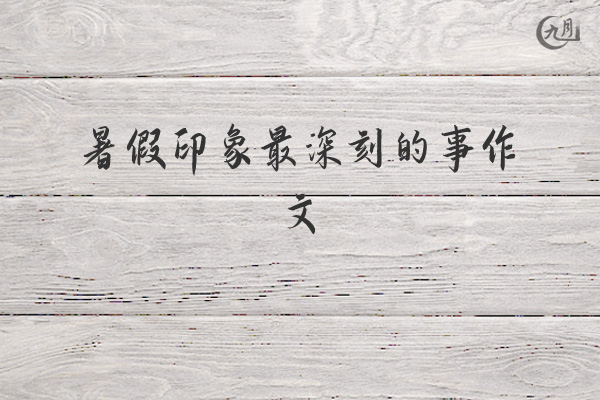 九月
暑假印象最深刻的事作
文